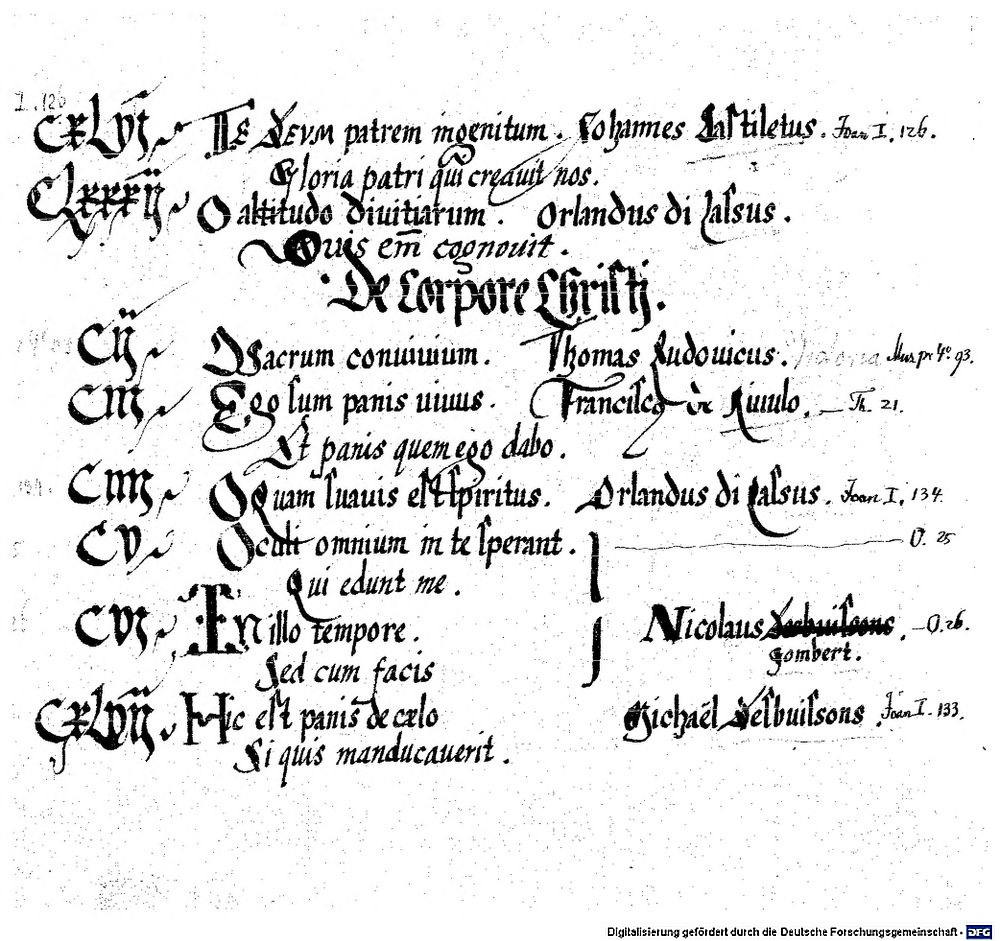 I. 126
CXLVI TE DEVM patrem ingenitum. Johannes Castiletus. Joan I. 126.
Gloria patri qui creauit nos.
CLXXXII O altitudo diuitiarum. Orlandus di Lassus.
Quis em̄ cognouit.
De Corpore Christi.
CII O Sacrum conuiuium. Thomas Ludouicus. Victoria Mus pr 4º 93.
CIII Ego sum panis uiuus. Francisco de Riuulo. Th. 21.
Et panis quem ego dabo.
CIIII O quam suauis est spiritus. Orlandus di Lassus. Joan I. 134.
CV Oculi omnium in te sperant. O. 25
Qui edunt me.
CVI In illo tempore. Nicolaus Desbuissons. O. 26.
gombert.
Sed cum facis
CXLVII Hic est panis de cælo Michaël Desbuissons Joan I. 133.
Si quis manducauerit.
Digitalisierung gefördert durch die Deutsche Forschungsgemeinschaft - DFG